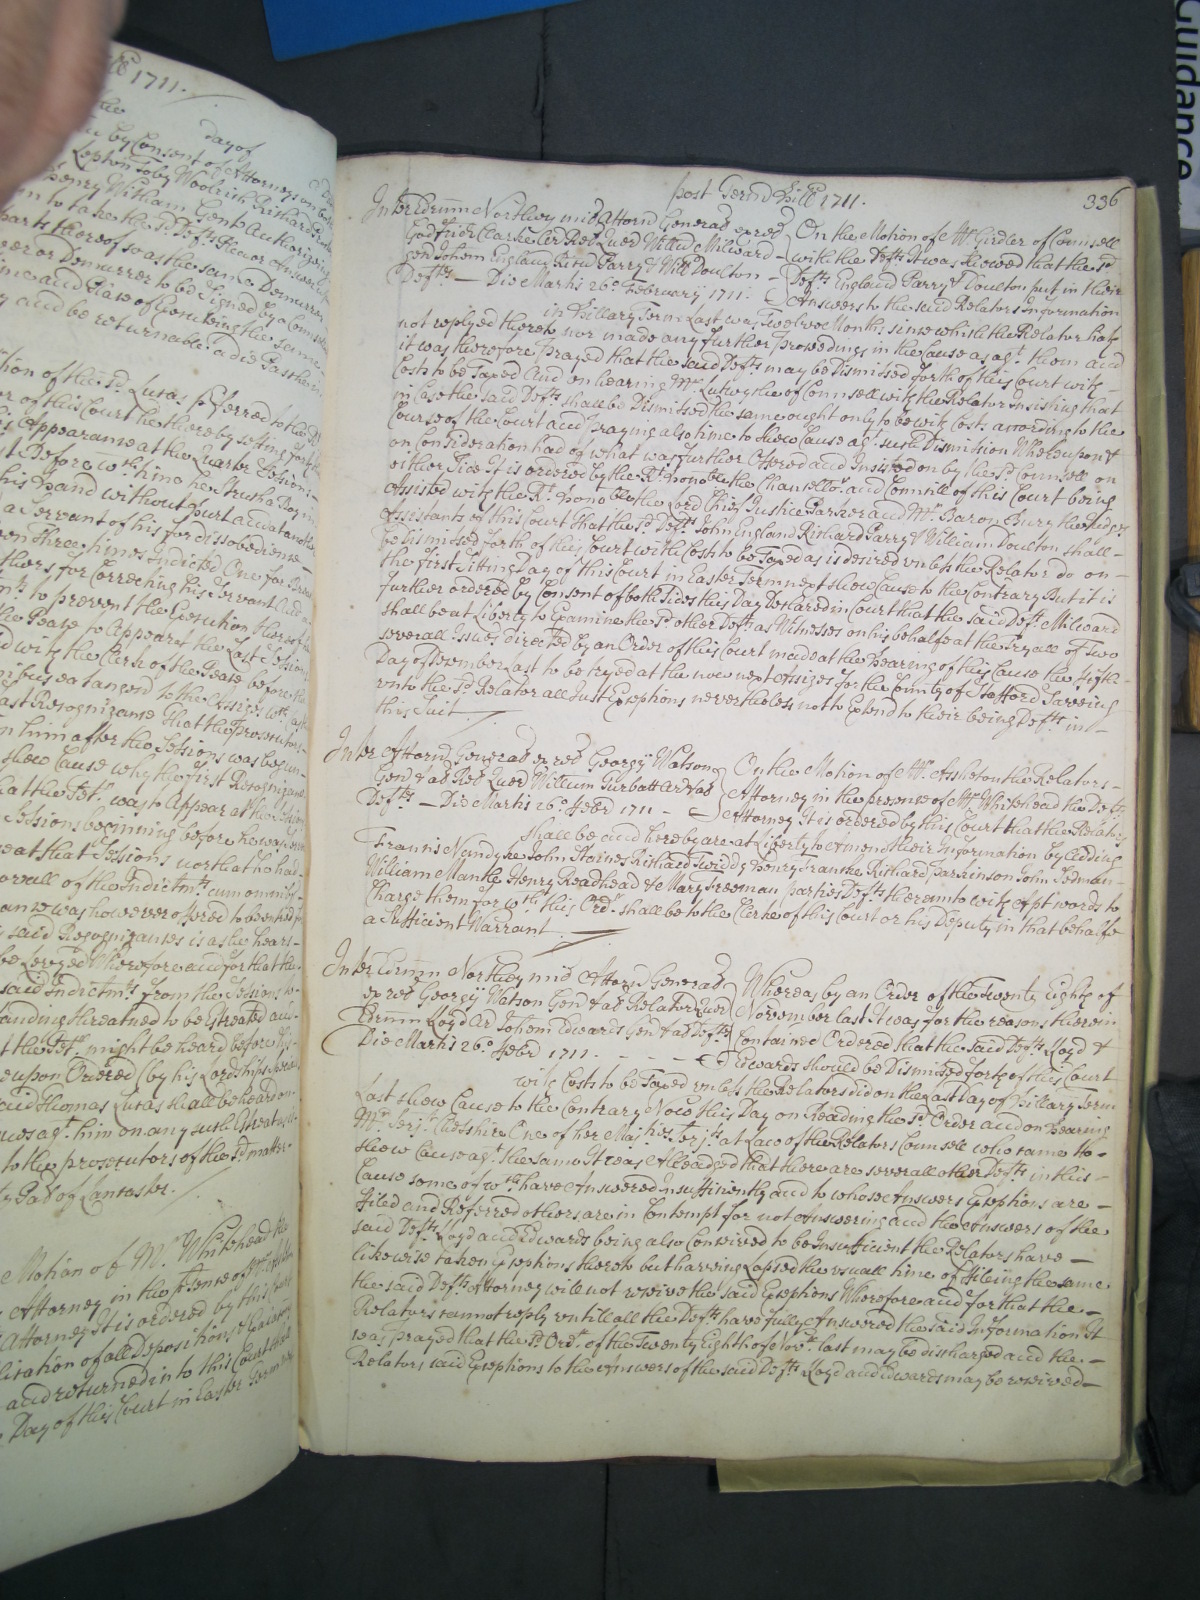 1711.
day of
by Consent of Attorneys on both
Toby Woolrich Richard
Henry Witham Gent Authorizing
to take the sd. Defts. Plea or Answer
parts thereof so as the same Demurrer
or Demurrer to be Signed by a Counsell
time and place of Executing the same
and be returnable a die Paschae in
tion of the sd. Lucas pferred to the Rt
of this Court the thereby setting forth
Appearance at the Quarter Sessions
his hand without hurt
a Servant of his for dissobedience
Three times Indicted One for
for Correcting his Servant And
to prevent the Execution thereof
the Pease to Appear at the Last Sessions
with the Clerk of the Pease before the
to the Assizes wch. as
Last Recognizance That the Prosecutors
him after the Sessions was begun
shew Cause why the first Recognizance
the Petr. was to Appear at the Session
Sessions beginning before he was
at that Sessions nor that he had
of the Indictmts.
was however offered to be entred for
said Recognizances is as he hears
be Levyed Wherefore and for that the
said Indictmts. from the Sessions
threatned to be Estreated
the Petr. might be heard before
upon Ordered (by his Lordships
Thomas Lucas shall be heard on
agt. him on any such Estreats
to the prosecutors of the sd. matter
Goal of Lancaster.
Motion of Mr. Whitehead the
Attorney in the psence of Mr.
Attorney It is ordered by this Court
lication of all Depositions
and returned into this Court the
Day of this Court in Easter Term
336
post Termd Hill 1711.
Inter Edrum Northey mil Attornd Generald ex red
Godfrid Clarke Ar Red Quer Willd Milward
Gen Johem England Ricum Parry & Will Doulton
Defts. — Die Martis 26o February 1711.
On the Motion of Mr. Girdler of Counsell
with the Defts. It was shewed that the sd.
Defts. England Parry & Doulton put in their
Answers to the said Relators Information
in Hillary Term Last was Twelve Months since which the Relator hath
not replyed thereto nor made any further proceedings in the Cause as agt. them and
it was therefore prayed that the said Defts. may be Dismissed forth of this Court with
Costs to be Taxed And on hearing Mr. Lutwyche of Counsell with the Relator insisting that
in Case the said Defts. shall be Dismissed the same ought only to be with Costs according to the
Course of the Court and praying also time to shew Cause agt. such Dismission Whereupon &
on Consideration had of what was further Offered and Insisted on by the sd. Counsell on
either Side It is ordered by the Rt. honoble the Chancellor. and Councill of this Court being
Assisted with the Rt. honoble the Lord Chief Justice Parker and Mr. Baron Bury the Judges
Assistants of this Court That the sd. Defts. John England Richard Parry & William Doulton shall
be Dismissed forth of this Court with Costs to be Taxed as is desired unless the Relator do on
the first Sitting Day of this Court in Easter Term next shew Cause to the Contrary But it is
further ordered by Consent of both Sides this Day Declared in Court that the said Deft. Milward
shall be at Liberty to Examine the sd. other Defts. as Witnesses on his behalfe at the Tryall of Two
severall Issues directed by an Order of this Court made at the hearing of this Cause the Eighth
Day of December last to be tryed at the now next Assizes for the County of Stafford Saveing
unto the sd. Relator all Just Exceptions nevertheless not to Extend to their being Defts. in
this Suit
Inter Attornd Generald ex red Georgij Watson
Gend & al Red Quer William Turbatt Ar & al
Defts. — Die Martis 26o Febr 1711 —
On the Motion of Mr. Assheton the Relators
Attorney in the presence of Mr. Whitehead the Defts.
Attorney It is ordered by this Court that the Relators
shall be and hereby are at Liberty to Amend their Information by Adding
Francis Nundyke John Starnes Richard Twiddy Henry Franke Richard Parkinson John Pedman
William Mantle Henry Readhead & Mary Freeman parties Defts. thereunto with Apt words to
Charge them for wch. this Ordr. shall be to the Clerke of this Court or his Deputy in that behalfe
a Sufficient Warrant
Inter Edrum Northey mil Attornd Generald
ex red Georgij Watson Gen & al Relators Quer
Edrum Loyd Ar Johem Edwards Gen & al Defts.
Die Martis 26o Febr 1711.
Whereas by an Order of the Twenty Eighth of
November last It was for the reasons therein
Contained Ordered that the said Defts. Lloyd &
Edwards should be Dismissed forth of this Court
with Costs to be Taxed unless the Relators did on the Last Day of Hillary Term
Last shew Cause to the Contrary Now this Day on Reading the sd. Order and on hearing
Mr. Serjt. Chesshire One of her Majties. Serjts. at Law of the Relators Counsell who came to
shew Cause agt. the same It was Alleadged that there are severall other Defts. in this
Cause some of wch. have Answered insufficiently and to whose Answers Exceptions are
filed and Referred others are in Contempt for not Answering and the Answers of the
said Defts. Lloyd and Edwards being also Conceived to be Insufficient the Relators have
likewise taken Exceptions thereto but having Lapsed the usuall time of Fileing the same
the said Defts. Attorney will not receive the said Exceptions Wherefore and for that the
Relators cannot reply untill all the Defts. have fully Answered the said Information It
was prayed that the sd. Ordr. of the Twenty Eighth of Novr. last may be discharged and the
Relators said Exceptions to the Answers of the said Defts. Lloyd and Edwards may be received
Guidance